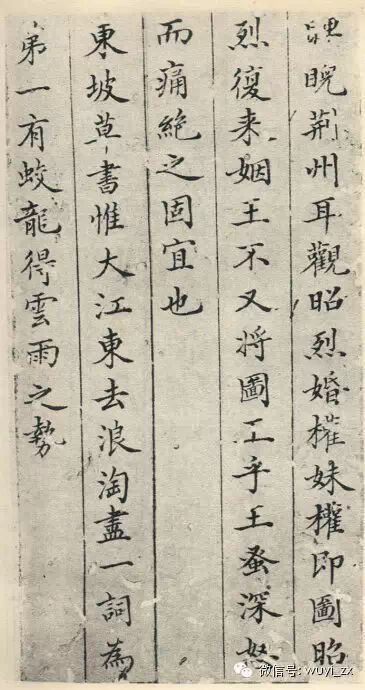 睥睨荊州耳觀昭烈婚權妹權即圖昭
烈復來姻王不又將圖王乎王蚤深怒
而痛絕之固宜也
東坡草書惟大江東去浪淘盡一詞為
弟一有蛟龍得雲雨之勢
微信号: wuyi_zx